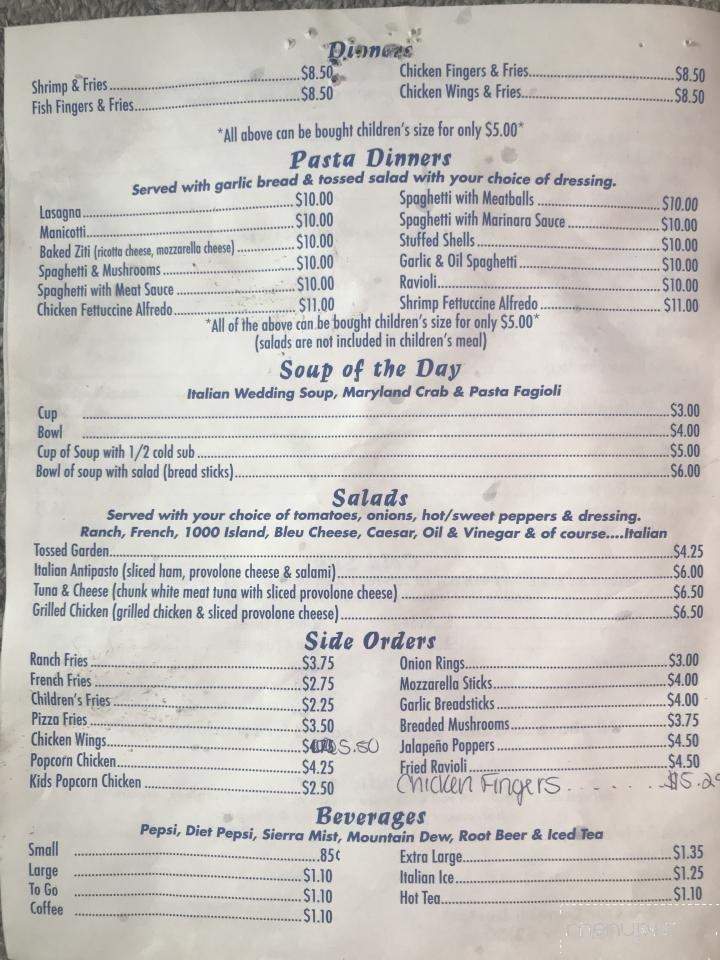 Dinners
Shrimp & Fries $8.50
Fish Fingers & Fries $8.50
Chicken Fingers & Fries $8.50
Chicken Wings & Fries $8.50
*All above can be bought children's size for only $5.00*
Pasta Dinners
Served with garlic bread & tossed salad with your choice of dressing.
Lasagna $10.00
Manicotti $10.00
Baked Ziti (ricotta cheese, mozzarella cheese) $10.00
Spaghetti & Mushrooms $10.00
Spaghetti with Meat Sauce $10.00
Chicken Fettuccine Alfredo $11.00
Spaghetti with Meatballs $10.00
Spaghetti with Marinara Sauce $10.00
Stuffed Shells $10.00
Garlic & Oil Spaghetti $10.00
Ravioli $10.00
Shrimp Fettuccine Alfredo $11.00
*All of the above can be bought children's size for only $5.00*
(salads are not included in children's meal)
Soup of the Day
Italian Wedding Soup, Maryland Crab & Pasta Fagioli
Cup $3.00
Bowl $4.00
Cup of Soup with 1/2 cold sub $5.00
Bowl of soup with salad (bread sticks) $6.00
Salads
Served with your choice of tomatoes, onions, hot/sweet peppers & dressing.
Ranch, French, 1000 Island, Bleu Cheese, Caesar, Oil & Vinegar & of course....Italian
Tossed Garden $4.25
Italian Antipasto (sliced ham, provolone cheese & salami) $6.00
Tuna & Cheese (chunk white meat tuna with sliced provolone cheese) $6.50
Grilled Chicken (grilled chicken & sliced provolone cheese) $6.50
Side Orders
Ranch Fries $3.75
French Fries $2.75
Children's Fries $2.25
Pizza Fries $3.50
Chicken Wings 5.50
Popcorn Chicken $4.25
Kids Popcorn Chicken $2.50
Onion Rings $3.00
Mozzarella Sticks $4.00
Garlic Breadsticks $4.00
Breaded Mushrooms $3.75
Jalapeño Poppers $4.50
Fried Ravioli $4.50
Chicken Fingers
Beverages
Pepsi, Diet Pepsi, Sierra Mist, Mountain Dew, Root Beer & Iced Tea
Small .85¢
Large $1.10
To Go $1.10
Coffee $1.10
Extra Large $1.35
Italian Ice $1.25
Hot Tea $1.10